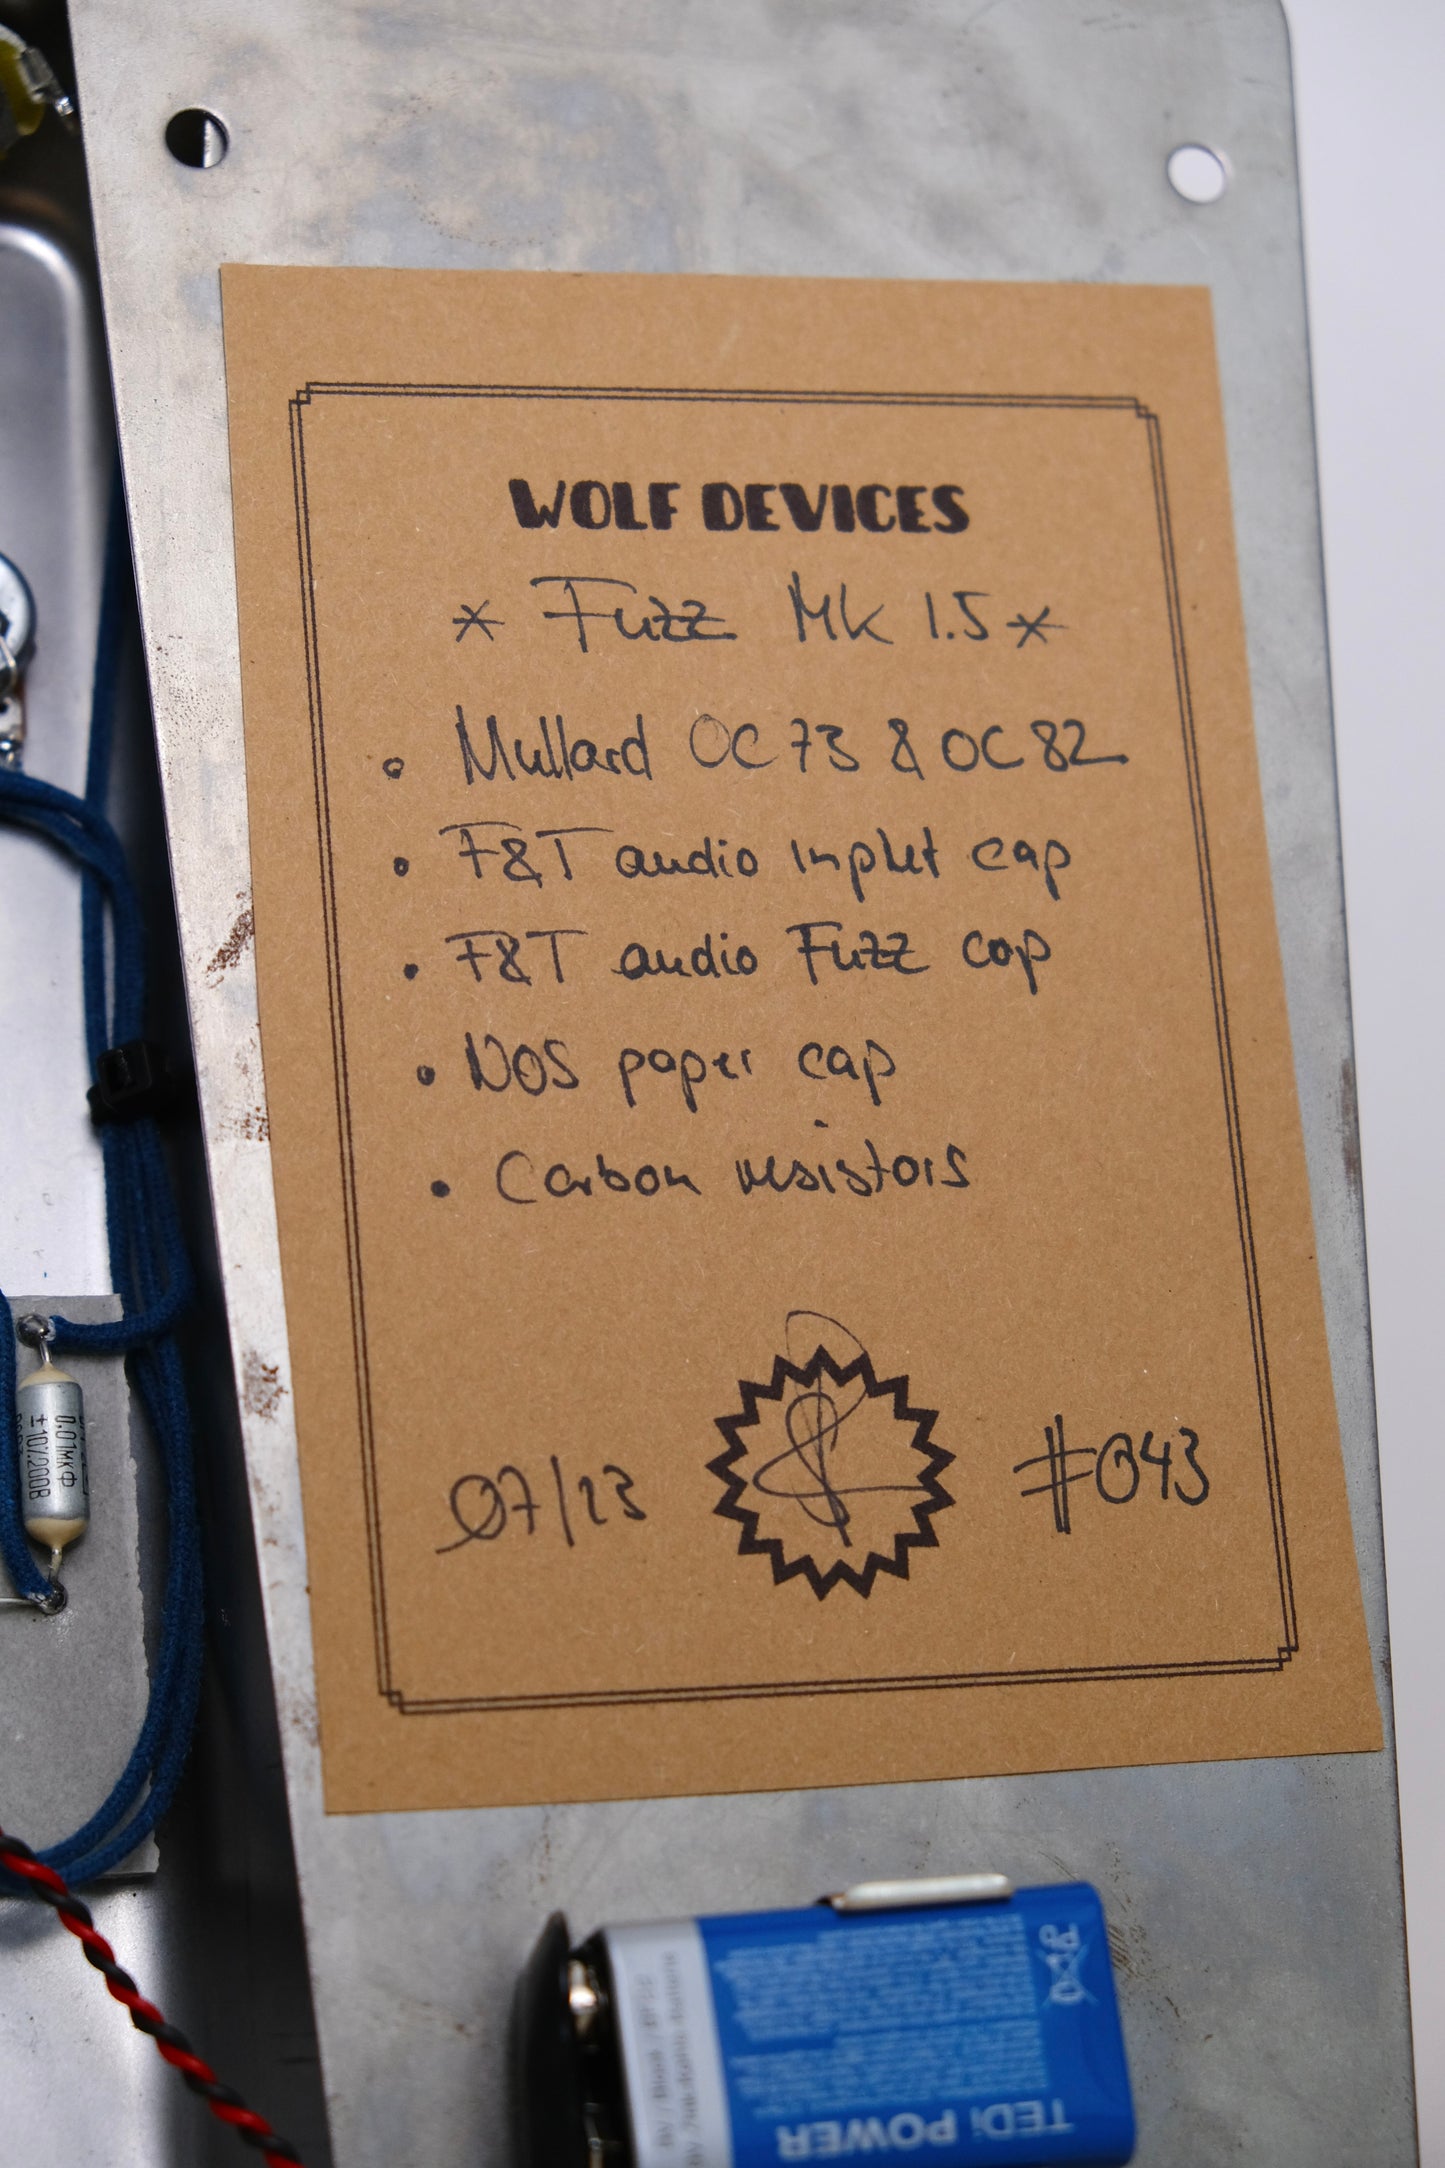 WOLF DEVICES
* Fuzz Mk 1.5 *
• Mullard OC73 & OC82
• F&T audio input cap
• F&T audio Fuzz cap
• NOS paper cap
• Carbon resistors
07/23
#043
0.01мкФ
±10% 200В
TEDi POWER